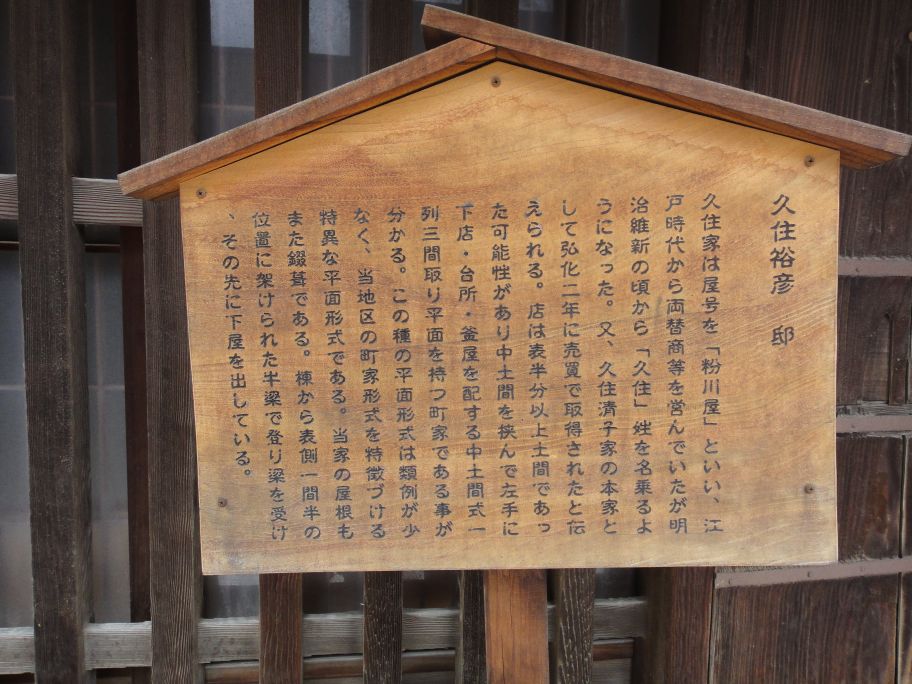 久住裕彦 邸
久住家は屋号を「粉川屋」といい、江
戸時代から両替商等を営んでいたが明
治維新の頃から「久住」姓を名乗るよ
うになった。又、久住清子家の本家と
して弘化二年に売買で取得されたと伝
えられる。店は表半分以上土間であっ
た可能性があり中土間を挟んで左手に
下店・台所・釜屋を配する中土間式一
列三間取り平面を持つ町家である事が
分かる。この種の平面形式は類例が少
なく、当地区の町家形式を特徴づける
特異な平面形式である。当家の屋根も
また錣葺である。棟から表側一間半の
位置に架けられた牛梁で登り梁を受け
、その先に下屋を出している。